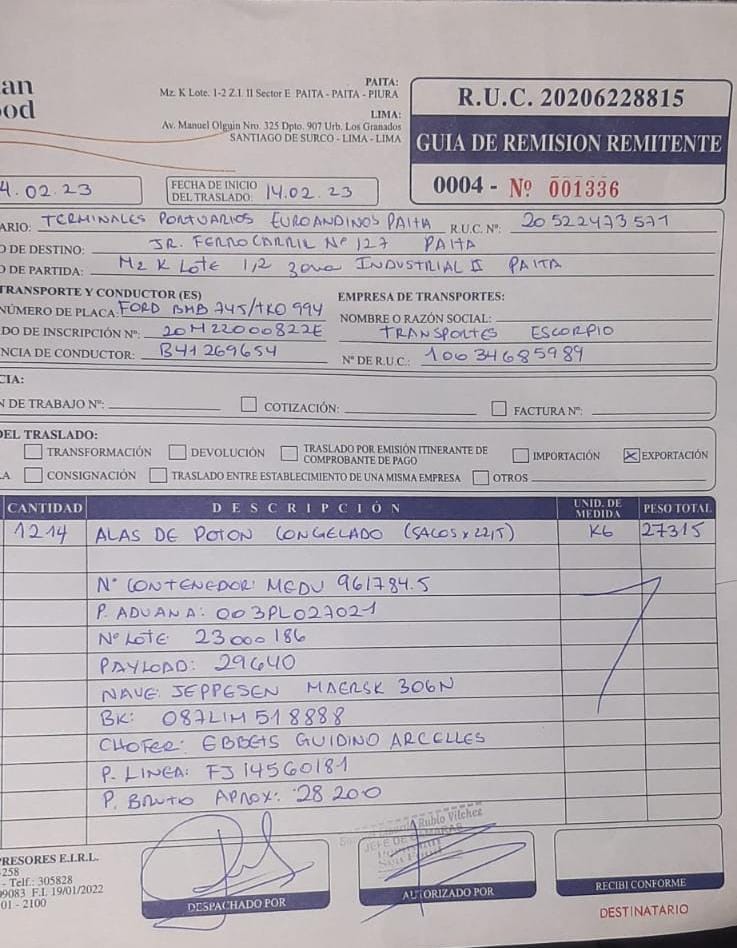 an
ood
PAITA:
Mz. K Lote. 1-2 Z.I. II Sector E PAITA - PAITA - PIURA
LIMA:
Av. Manuel Olguin Nro. 325 Dpto. 907 Urb. Los Granados
SANTIAGO DE SURCO - LIMA - LIMA
R.U.C. 20206228815
GUIA DE REMISION REMITENTE
0004 - Nº 001336
4.02.23
FECHA DE INICIO DEL TRASLADO: 14.02.23
ARIO: TERMINALES PORTUARIOS EUROANDINOS PAITA R.U.C. Nº: 20522473571
O DE DESTINO: JR. FERROCARRIL Nº 127 PAITA
O DE PARTIDA: Mz K Lote 1,2 zona INDUSTRIAL II PAITA
TRANSPORTE Y CONDUCTOR (ES)
EMPRESA DE TRANSPORTES:
NÚMERO DE PLACA: FORD BMB 745/TRO 994
NOMBRE O RAZÓN SOCIAL:
DO DE INSCRIPCIÓN Nº: 20M22000822E
TRANSPORTES ESCORPIO
NCIA DE CONDUCTOR: B41269654
Nº DE R.U.C.: 10034685989
CIA:
N DE TRABAJO Nº:
COTIZACIÓN:
FACTURA Nº:
DEL TRASLADO:
TRANSFORMACIÓN DEVOLUCIÓN TRASLADO POR EMISIÓN ITINERANTE DE COMPROBANTE DE PAGO IMPORTACIÓN X EXPORTACIÓN
A CONSIGNACIÓN TRASLADO ENTRE ESTABLECIMIENTO DE UNA MISMA EMPRESA OTROS
CANTIDAD DESCRIPCIÓN UNID. DE MEDIDA PESO TOTAL
1214 ALAS DE POTON CONGELADO (SACOS x 22,5) KG 27315
Nº CONTENEDOR: MEDU 961784.5
P. ADUANA: 003PL027021
Nº Lote 23000186
PAYLOAD: 29640
NAVE: JEPPESEN MAERSK 306N
BK: 087LIM518888
CHOFER: EBBETS GUIDINO ARCELLES
P. LINEA: FJ14560181
P. BRUTO APROX: 28200
Rubio Vilchez
JEFE DE CAMARAS
RESORES E.I.R.L.
258
- Telf.: 305828
09083 F.I. 19/01/2022
01 - 2100
DESPACHADO POR
AUTORIZADO POR
RECIBI CONFORME
DESTINATARIO